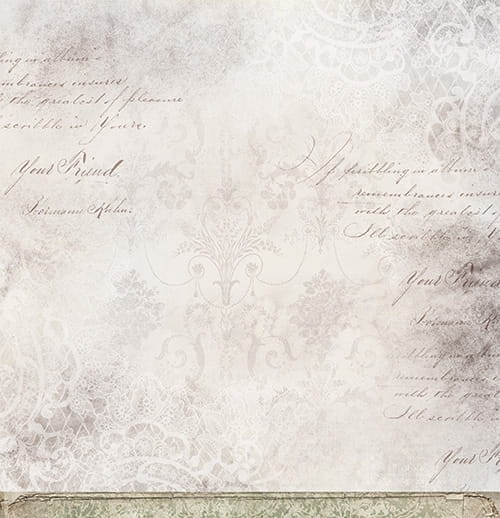 ling in album's
mbrances ensures
the greatest of pleasure
scribble in Yours.
Your Friend,
If scribbling in album
remembrances ensure
with the greatest
I'll scribble in
Your Friend
bbling in a
remembrances
with the great
I'll scribble
Your Frie